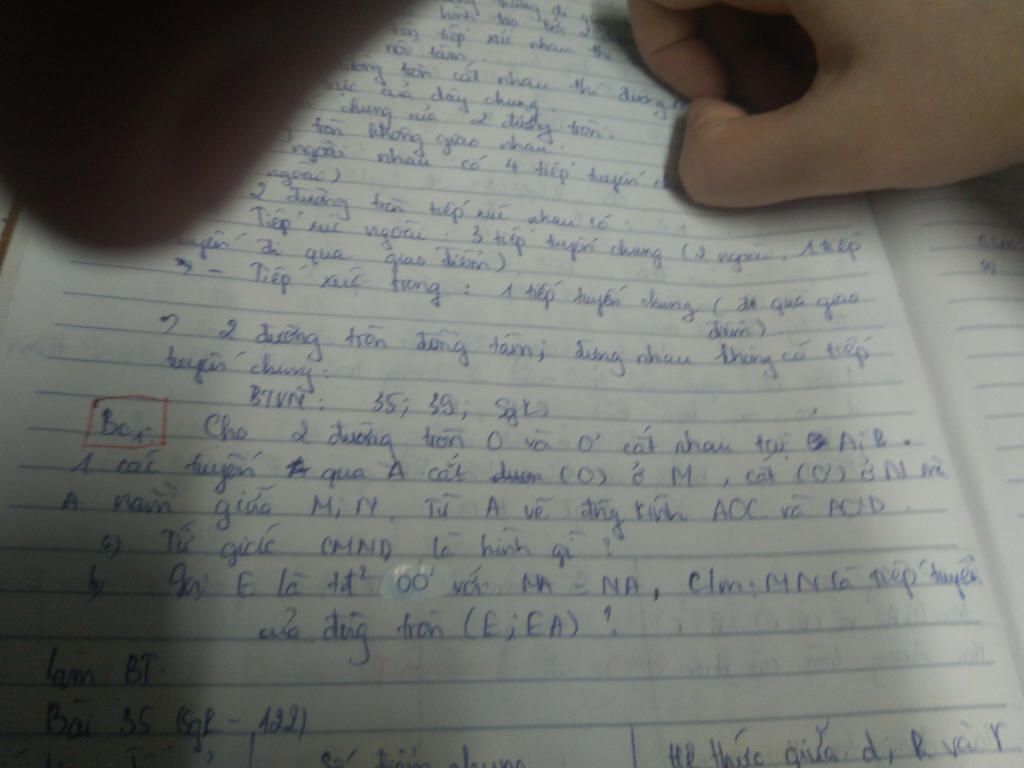 tiếp xúc nhau thì
nối tâm.
đường tròn cắt nhau thì đường
trực của dây chung.
chung của 2 đường tròn.
tròn không giao nhau.
ngoài nhau có 4 tiếp tuyến
ngoài)
2 đường tròn tiếp xúc nhau có:
Tiếp xúc ngoài: 3 tiếp tuyến chung (2 ngoài, 1 tiếp
tuyến đi qua giao điểm)
- Tiếp xúc trong: 1 tiếp tuyến chung (đi qua giao
điểm).
2 đường tròn đồng tâm; đựng nhau không có tiếp
tuyến chung.
BTVN: 35; 39; Sgk)
Cho 2 đường tròn O và O' cắt nhau tại A; B.
1 cát tuyến qua A cắt (O) ở M, cắt (O') ở N và
A nằm giữa M; N. Từ A vẽ đg kính AOC và AO'D.
a) Tứ giác CMND là hình gì?
b, Gọi E là tđ² OO' với MA = NA, C/m: MN là tiếp tuyến
của đng tròn (E; EA)?
Làm BT.
Bài 35 (Sgk - 122)
Số điểm chung
Hệ thức giữa d, R và r